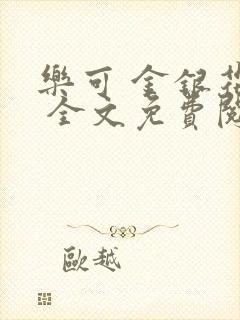 樂可 金銀花
全文免費閱
歐越